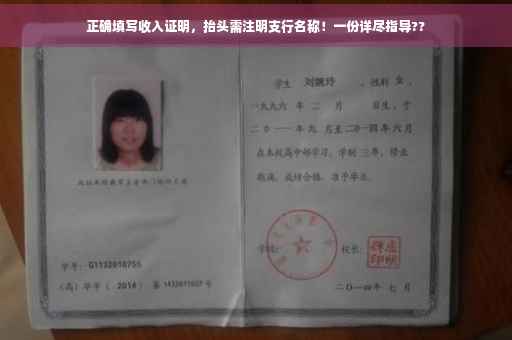 正确填写收入证明，抬头需注明支行名称！一份详尽指导??
学生 刘婉玲 ，性别 女 ，
一九九六 年 二 月 日生，于
二〇一一年 九 月至二〇一四年 六 月
在本校高中部学习，学制 三年，修业
期满，成绩合格，准予毕业。
学号： G1132010755
（高）毕字（ 2014 ）第 1432011027 号
学校：
校长：
二〇一四年 七 月